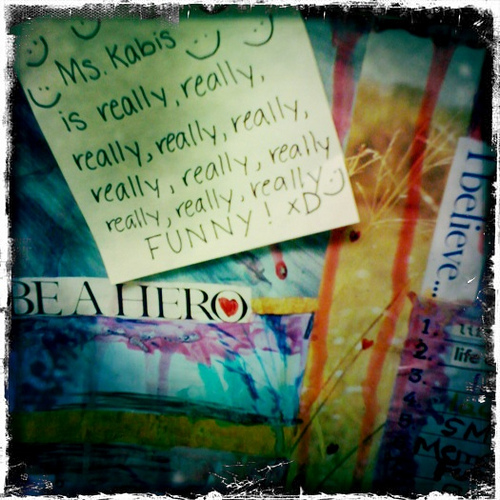 Ms. Kabis
is really, really,
really, really, really,
really, really, really
really, really, really
FUNNY! XD
BE A HERO
I believe...
1.
2.
life
3.
4.
5.
SM